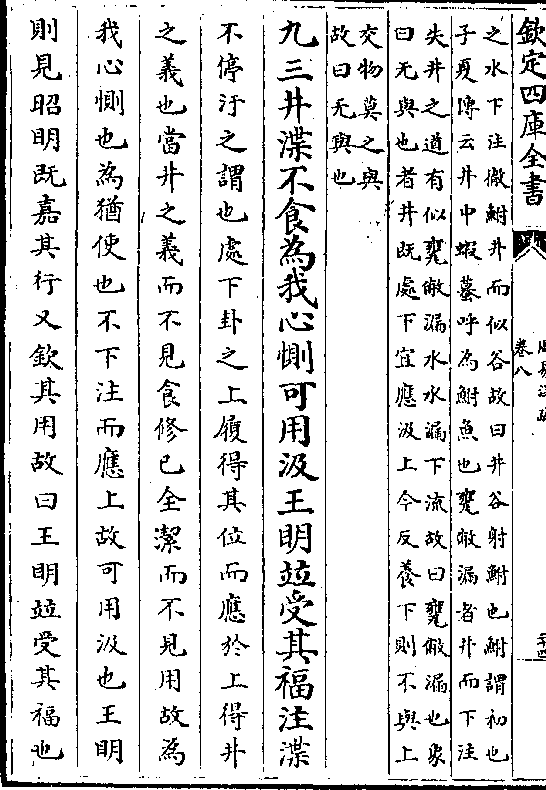 欽定四庫全書
卷八
之水下注微鮒井而似谷故曰井谷射鮒也鮒謂初也
子夏傳云井中蝦蟇呼為鮒魚也甕敝漏者井而下注
失井之道有似甕敝漏水水漏下流故曰甕敝漏也象
曰无與也者井既處下宜應汲上今反養下則不與上
交物莫之與
故曰无與也
九三井渫不食為我心惻可用汲王明竝受其福注渫
不停汙之謂也處下卦之上履得其位而應於上得井
之義也當井之義而不見食修已全潔而不見用故為
我心惻也為猶使也不下注而應上故可用汲也王明
則見昭明既嘉其行又欽其用故曰王明竝受其福也